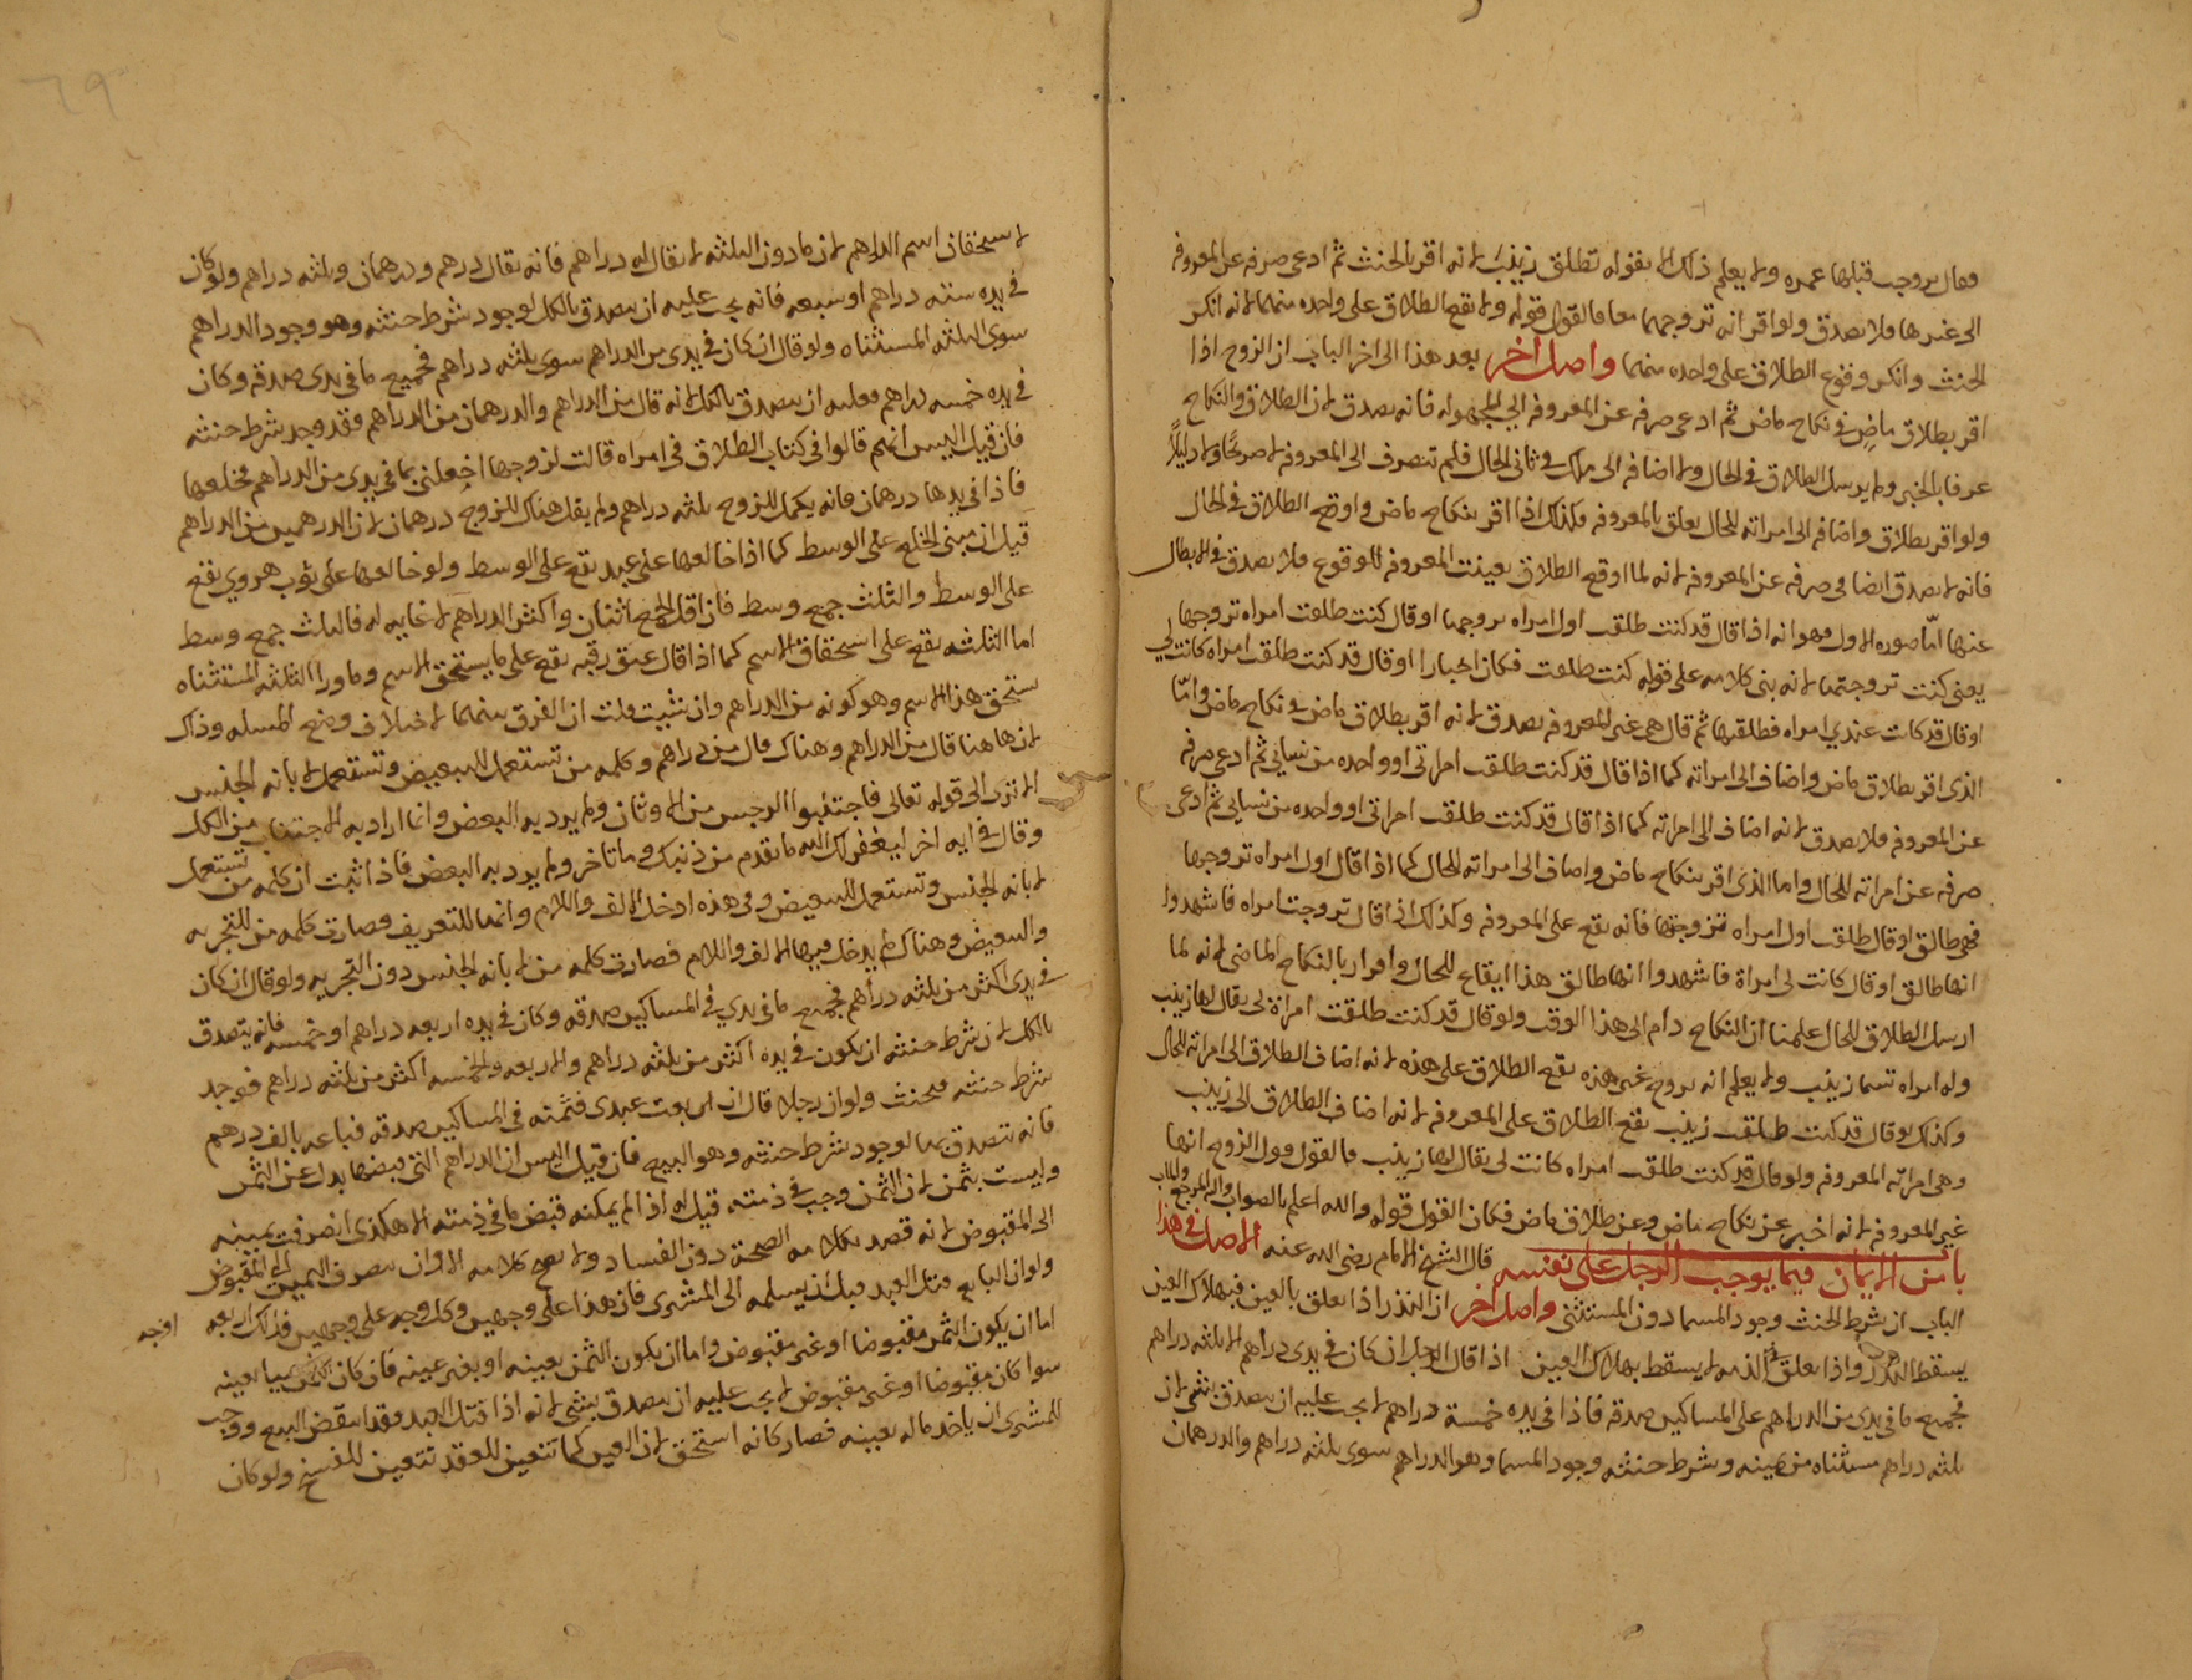 فقال تزوجت قبلها عمره ولا يعلم ذلك الا بقوله تطلق زينب لانه اقر بالحنث ثم ادعى صرفه عن المعروفه
الى غيرها فلا يصدق ولو اقر انه تزوجهما معا فالقول قوله ولا يقع الطلاق على واحده منهما لانه انكر
الحنث وانكر وقوع الطلاق على واحده منهما واصل اخر بعد هذا الى اخر الباب ان الزوج اذا
اقر بطلاق ماض في نكاح ماض ثم ادعى صرفه عن المعروفه الى المجهوله فانه يصدق لان الطلاق والنكاح
عرفا بالخبر ولم يرسل الطلاق في الحال ولا اضافه الى ملك في ثاني الحال فلم تنصرف الى المعروفه لا صريحًا ولا دليلًا
ولو اقر بطلاق واضافه الى امراته للحال يعلق بالمعروفه وكذلك اذا اقر بنكاح ماض واوقع الطلاق في الحال
فانه لا يصدق ايضا في صرفه عن المعروفه لانه لما اوقع الطلاق تعينت المعروفه للوقوع فلا يصدق في الابطال
عنها امّا صوره الاول وهو انه اذا قال قد كنت طلقت اول امراه تزوجها او قال كنت طلقت امراه تزوجها
يعنى كنت تزوجتها لانه بنى كلامه على قوله كنت طلقت فكان اخبارا او قال قد كنت طلقت امراه كانت لي
او قال قد كانت عندي امراه فطلقتها ثم قال هي غير المعروفه يصدق لانه اقر بطلاق ماض في نكاح ماض وامّا
الذى اقر بطلاق ماض واضاف الى امراته كما اذا قال قد كنت طلقت امراتى او واحده من نسائي ثم ادعى صرفه
عن المعروفه فلا يصدق لانه اضاف الى امراته كما اذا قال قد كنت طلقت امراتى او واحده من نسائي ثم ادعى
صرفه عن امراته للحال واما الذى اقر بنكاح ماض واضاف الى امراته للحال كما اذا قال اول امراه تزوجها
فهى طالق او قال طلقت اول امراه تزوجتها فانه يقع على المعروفه وكذلك اذا قال تزوجت امراه فاشهدوا
انها طالق او قال كانت لى امراة فاشهدوا انها طالق هذا ايقاع للحال واقرار بالنكاح الماضى لانه لما
ارسل الطلاق للحال علمنا ان النكاح دام الى هذا الوقت ولو قال قد كنت طلقت امراة لى يقال لها زينب
وله امراه تسما زينب ولا يعلم انه تزوج غير هذه يقع الطلاق على هذه لانه اضاف الطلاق الى امراته للحال
وكذلك لو قال قد كنت طلقت زينب يقع الطلاق على المعروفه لانه اضاف الطلاق الى زينب
وهى امراته المعروفه ولو قال قد كنت طلقت امراه كانت لى يقال لها زينب فالقول قول الزوج انها
غير المعروفه لانه اخبر عن نكاح ماض وعن طلاق ماض فكان القول قوله والله اعلم بالصواب واليه المرجع والماب
باب من الايمان فيما يوجب الرجل على نفسه قال الشيخ الامام رضى الله عنه الاصل في هذا
الباب ان شرط الحنث وجود المسما دون المستثنى واصل اخر ان النذر اذا تعلق بالعين فبهلاك العين
يسقط النذر واذا تعلق في الذمه لا يسقط بهلاك العين اذا قال الرجل ان كان في يدى دراهم الا ثلثه دراهم
فجميع ما في يدى من الدراهم على المساكين صدقه فاذا في يده خمسة دراهم لا يجب عليه ان يتصدق بشى لان
ثلثه دراهم مستثناه من يمينه وشرط حنثه وجود المسما وهو الدراهم سوى ثلثه دراهم والدرهمان
لا يستحقان اسم الدراهم لان ما دون الثلثه لا يقال له دراهم فانه يقال درهم ودرهمان وثلثه دراهم ولو كان
في يده سته دراهم او سبعه فانه يجب عليه ان يتصدق بالكل لوجود شرط حنثه وهو وجود الدراهم
سوى الثلثه المستثناه ولو قال ان كان في يدى من الدراهم سوى ثلثه دراهم فجميع ما في يدى صدقه وكان
في يده خمسه دراهم فعليه ان يتصدق بالكل لانه قال من الدراهم والدرهمان من الدراهم فقد وجد شرط حنثه
فان قيل اليس انهم قالوا في كتاب الطلاق في امراه قالت لزوجها اخلعنى بما في يدى من الدراهم فخلعها
فاذا في يدها درهمان فانه يكمل للزوج ثلثه دراهم ولم يقل هناك للزوج درهمان لان الدرهمين من الدراهم
قيل ان مبنى الخلع على الوسط كما اذا خالعها على عبد يقع على الوسط ولو خالعها على ثوب هروي يقع
على الوسط والثلث جمع وسط فان اقل الجمع اثنان واكثر الدراهم لا غايه له فالثلث جمع وسط
اما الثلثه يقع على استحقاق الاسم كما اذا قال عتق رقبه يقع على ما يستحق الاسم وما ورا الثلثه المستثناه
يستحق هذا الاسم وهو كونه من الدراهم وان شيت قلت ان الفرق بينهما لاختلاف وضع المسله وذاك
لان هاهنا قال من الدراهم وهناك قال من دراهم وكلمه من تستعمل للتبعيض وتستعمل لابانه الجنس
الا ترى الى قوله تعالى فاجتنبوا الرجس من الاوثان ولم يرد به البعض وانما اراد به الاجتناب من الكل
وقال في ايه اخر ليغفر لك الله ما تقدم من ذنبك وما تاخر ولم يرد به البعض فاذا ثبت ان كلمه من تستعمل
لابانه الجنس وتستعمل للتبعيض وفى هذه ادخل الالف واللام وانهما للتعريف فصارت كلمه من للتجزيه
والتبعيض وهناك لم يدخل فيها الالف واللام فصارت كلمه من لابانه الجنس دون التجزيه ولو قال ان كان
في يدى اكثر من ثلثه دراهم فجميع ما في يدي في المساكين صدقه وكان في يده اربعه دراهم او خمسه فانه يتصدق
بالكل لان شرط حنثه ان يكون في يده اكثر من ثلثه دراهم والاربعه والخمسه اكثر من ثلثه دراهم فوجد
شرط حنثه فيحنث ولو ان رجلا قال ان بعت عبدى فثمنه في المساكين صدقه فباعه بالف درهم
فانه يتصدق بها لوجود شرط حنثه وهو البيع فان قيل اليس ان الدراهم التى قبضها بدل عن الثمن
وليست بثمن لان الثمن وجب في ذمته قيل له اذا لم يمكنه قبض ما في ذمته الا هكذى انصرفت يمينه
الى المقبوض لانه قصد بكلامه الصحة دون الفساد ولا يصح كلامه الا وان يصرف اليمين الى المقبوض
ولو ان البايع قتل العبد قبل ان يسلمه الى المشترى فان هذا على وجهين وكل وجه على وجهين فذلك اربعه اوجه
اما ان يكون الثمن مقبوضا او غير مقبوض واما ان يكون الثمن بعينه او بغير عينه فان كان الثمن شيا بعينه
سوا كان مقبوضا او غير مقبوض لا يجب عليه ان يتصدق بشى لانه اذا قتل العبد فقد انتقض البيع ووجب
للمشترى ان ياخذ ماله بعينه فصار كانه استحق لان العين كما تتعين للعقد تتعين للفسخ ولو كان